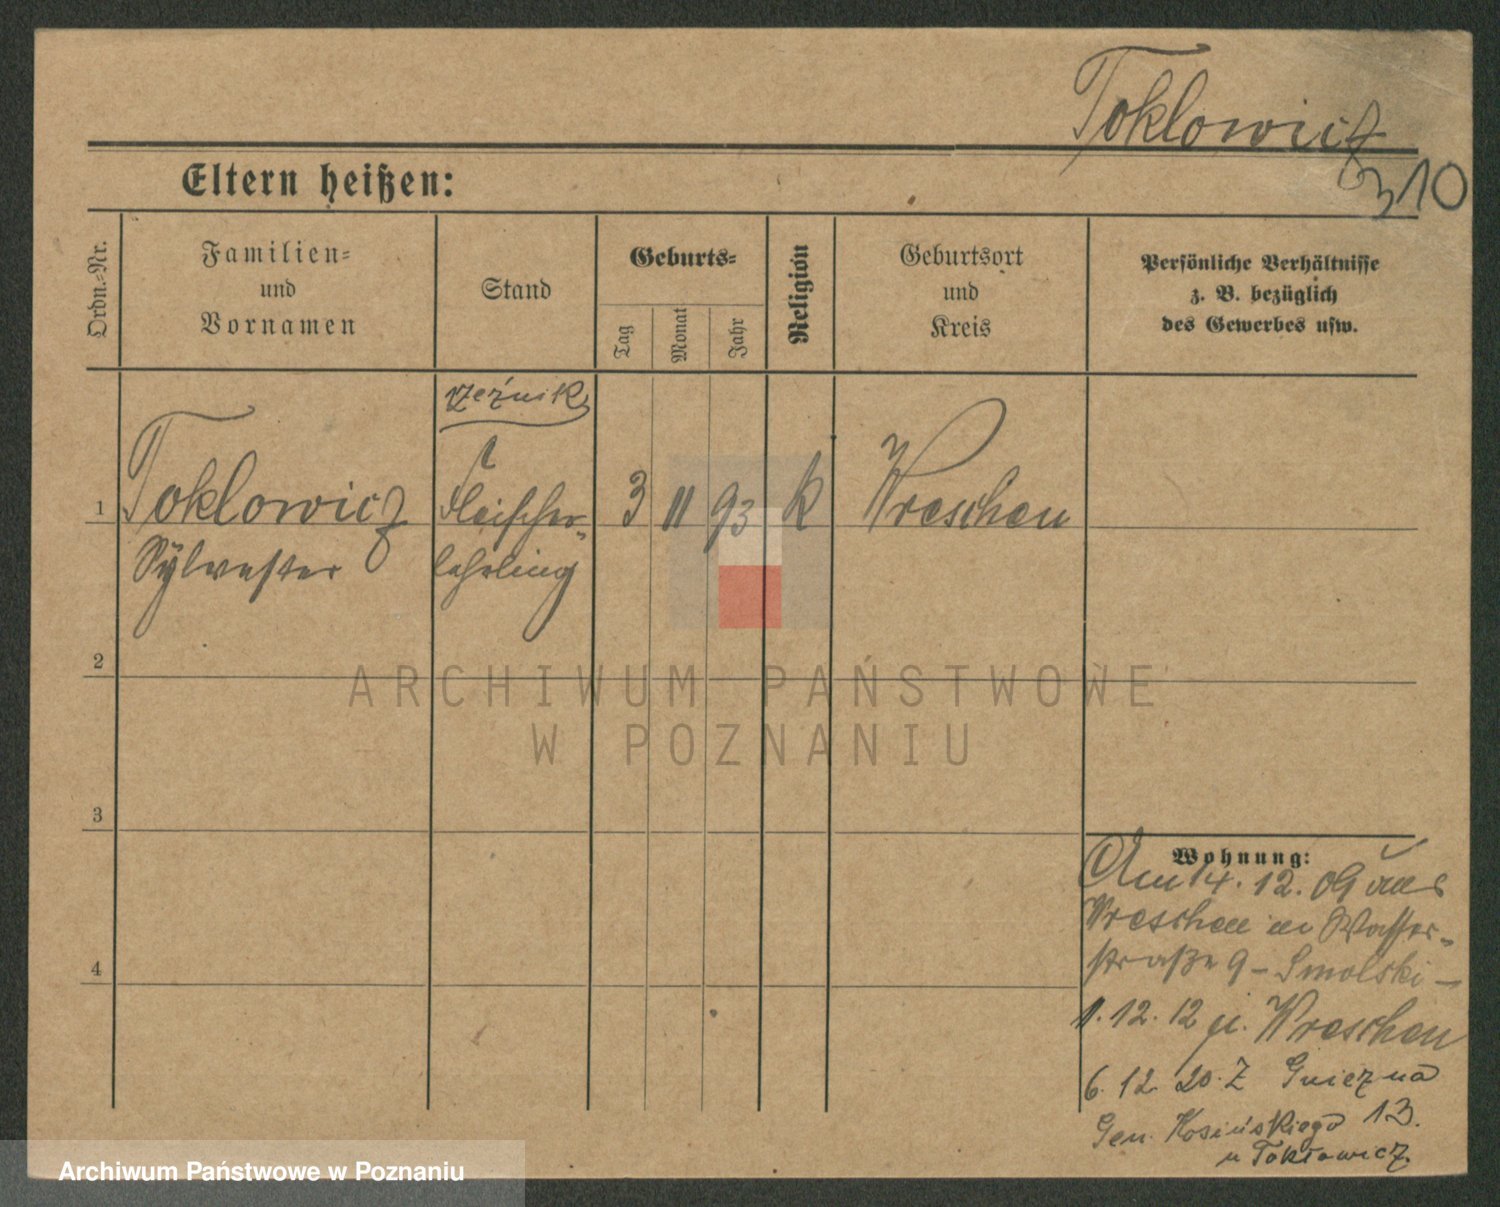 Toklowicz
310
Eltern heißen:
Ordn.-Nr.
Familien-
und
Vornamen
Stand
Geburts-
Tag
Monat
Jahr
Religion
Geburtsort
und
Kreis
Persönliche Verhältnisse
z. B. bezüglich
des Gewerbes usw.
rzeźnik
1 Toklowicz Fleischer- 3 11 93 k Wreschen
Sylvester lehrling
2
3
4
Wohnung:
Am 14. 12. 09 aus
Wreschen in Wasser-
straße 9 - Smolski -
1. 12. 12 n. Wreschen
6. 12. 20. Z Gniezna
Gen. Kosińskiego 13.
u Tokłowicz.
ARCHIWUM PAŃSTWOWE
W POZNANIU
Archiwum Państwowe w Poznaniu